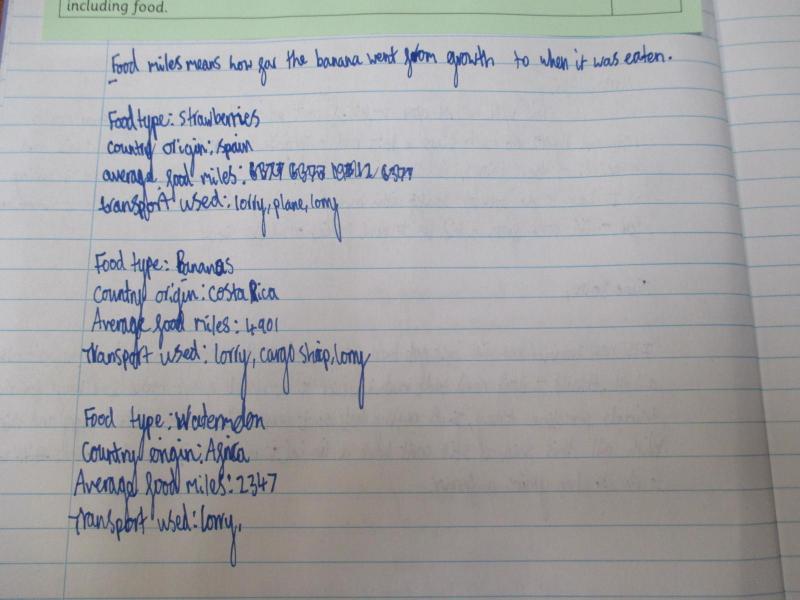 including food.
Food miles means how far the banana went from growth to when it was eaten.
Food type: strawberries
country origin: spain
average food miles: 6377
transport used: lorry, plane, lorry
Food type: Bananas
country origin: costa Rica
Average food miles: 4901
transport used: lorry, cargo ship, lorry
Food type: Watermelon
Country origin: Africa
Average food miles: 2347
transport used: lorry,